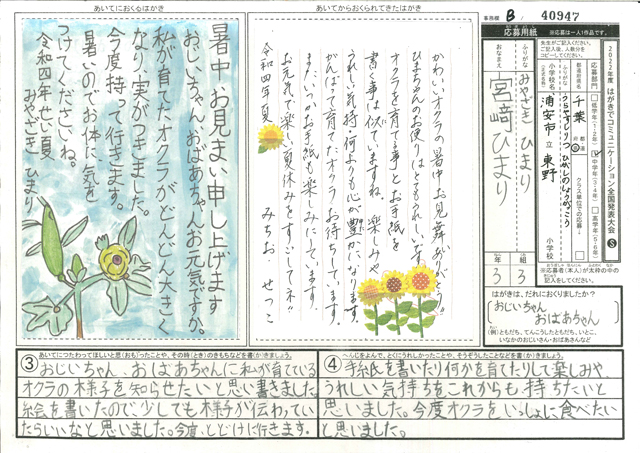 あいてにおくるはがき
暑中お見まい申し上げます
おじいちゃん、おばあちゃんお元気ですか。
私が育てたオクラがどんどん大きく
なり、実がつきました。
今度持って行きます。
暑いのでお体に気を
つけてくださいね。
令和四年せい夏
みやざき ひまり
あいてからおくられてきたはがき
かわいいオクラの暑中お見舞ありがとう。
ひまりちゃんのお便りはとてもうれしいです。
オクラを育てる事とお手紙を
書く事は似ていますね。楽しみや
うれしい気持、何よりも心が豊かになります。
がんばって育てたオクラお待ちしています。
またいつかお手紙も楽しみにしてます。
お元気で楽しい夏休みをすごしてネ!!
令和四年 夏
みちお、せつこ
事務欄 B
40947
応募用紙
※応募は一人1作品です。
2022年度 はがきでコミュニケーション全国発表大会 S
応募部門
低学年(1・2年)
中学年(3・4年)
高学年(5・6年)
千葉
浦安市 立 東野
小学校
小学校名
クラス単位での応募
ふりがな
みやざき ひまり
おなまえ
宮﨑 ひまり
3 年 3 組
※応募者(本人)が太枠の中の
記入をしてください。
はがきは、だれにおくりましたか?
おじいちゃん
おばあちゃん
(例)ともだち、てんこうしたともだち、いとこ、
いなかのおじいさん・おばあさんなど
③ あいてにつたわってほしいと思(おも)ったことや、その時(とき)のきもちなどを書(か)きましょう。
おじいちゃん、おばあちゃんに私が育てている
オクラの様子を知らせたいと思い書きました。
絵を書いたので、少しでも様子が伝わってい
たらいいなと思いました。今度、とどけに行きます。
④ へんじをよんで、とくにうれしかったことや、そうぞうしたことなどを書(か)きましょう。
手紙を書いたり何かを育てたりして楽しみや
うれしい気持ちをこれからも持ちたいと
思いました。今度オクラをいっしょに食べたい
と思いました。